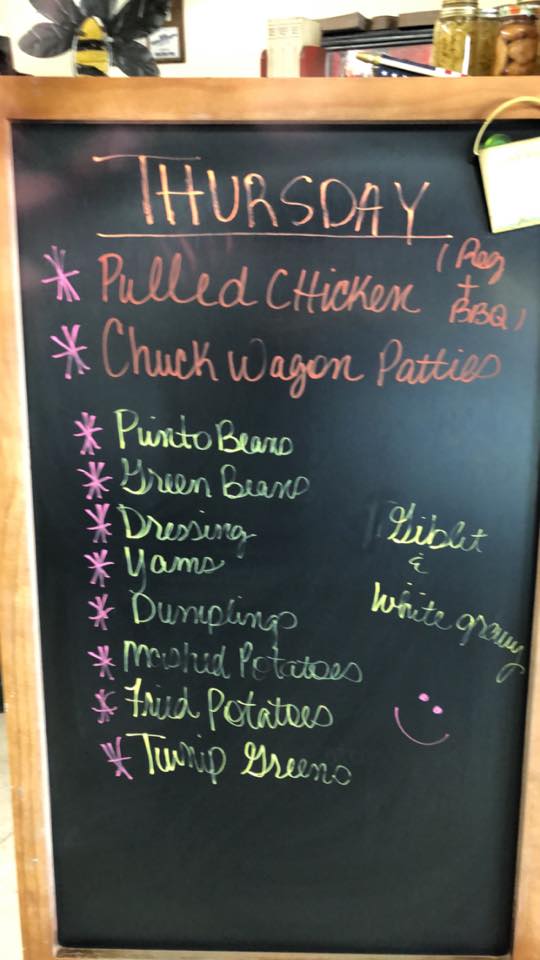 THURSDAY
* Pulled CHicken (Reg + BBQ)
* Chuck Wagon Patties
* Pinto Beans
* Green Beans
* Dressing
* Yams
* Dumplings
* Mashed Potatoes
* Fried Potatoes
* Turnip Greens
Giblet
&
White gravy